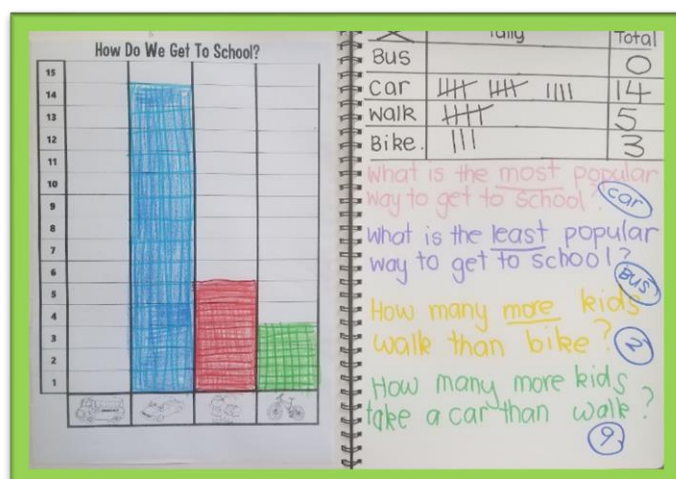 How Do We Get To School?
15
14
13
12
11
10
9
8
7
6
5
4
3
2
1
Tally Total
Bus 0
Car 14
Walk 5
Bike. 3
What is the most popular
way to get to school? Car
What is the least popular
way to get to school? Bus
How many more kids
walk than bike? 2
How many more kids
take a car than walk?
9